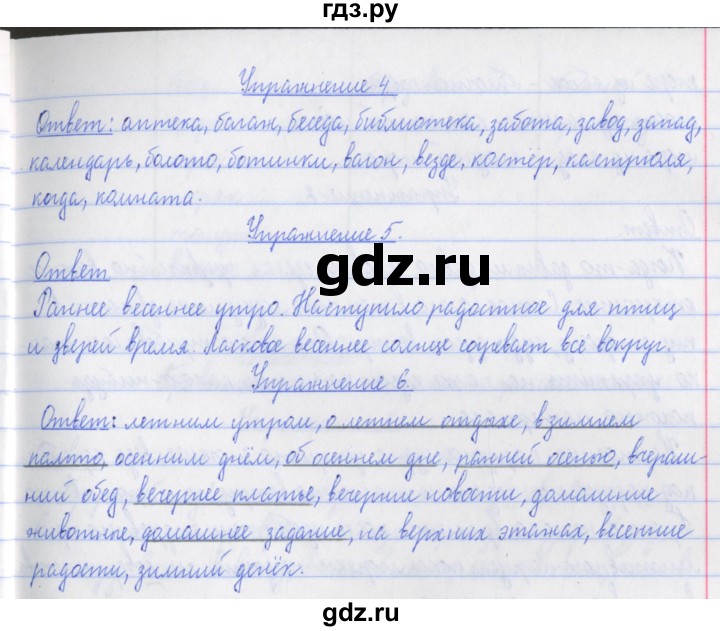 гдз.ру
Упражнение 4.
Ответ: аптека, багаж, беседа, библиотека, забота, завод, запад,
календарь, болото, ботинки, вагон, везде, костёр, кастрюля,
когда, комната.
Упражнение 5.
gdz.ru
Ответ
Раннее весеннее утро. Наступило радостное для птиц
и зверей время. Ласковое весеннее солнце согревает всё вокруг.
Упражнение 6.
Ответ: летним утром, о летнем отдыхе, в зимнем
пальто, осенним днём, об осеннем дне, ранней осенью, вчераш-
ний обед, вечернее платье, вечерние новости, домашние
животные, домашнее задание, на верхних этажах, весенние
радости, зимний денёк.
gdz.ru